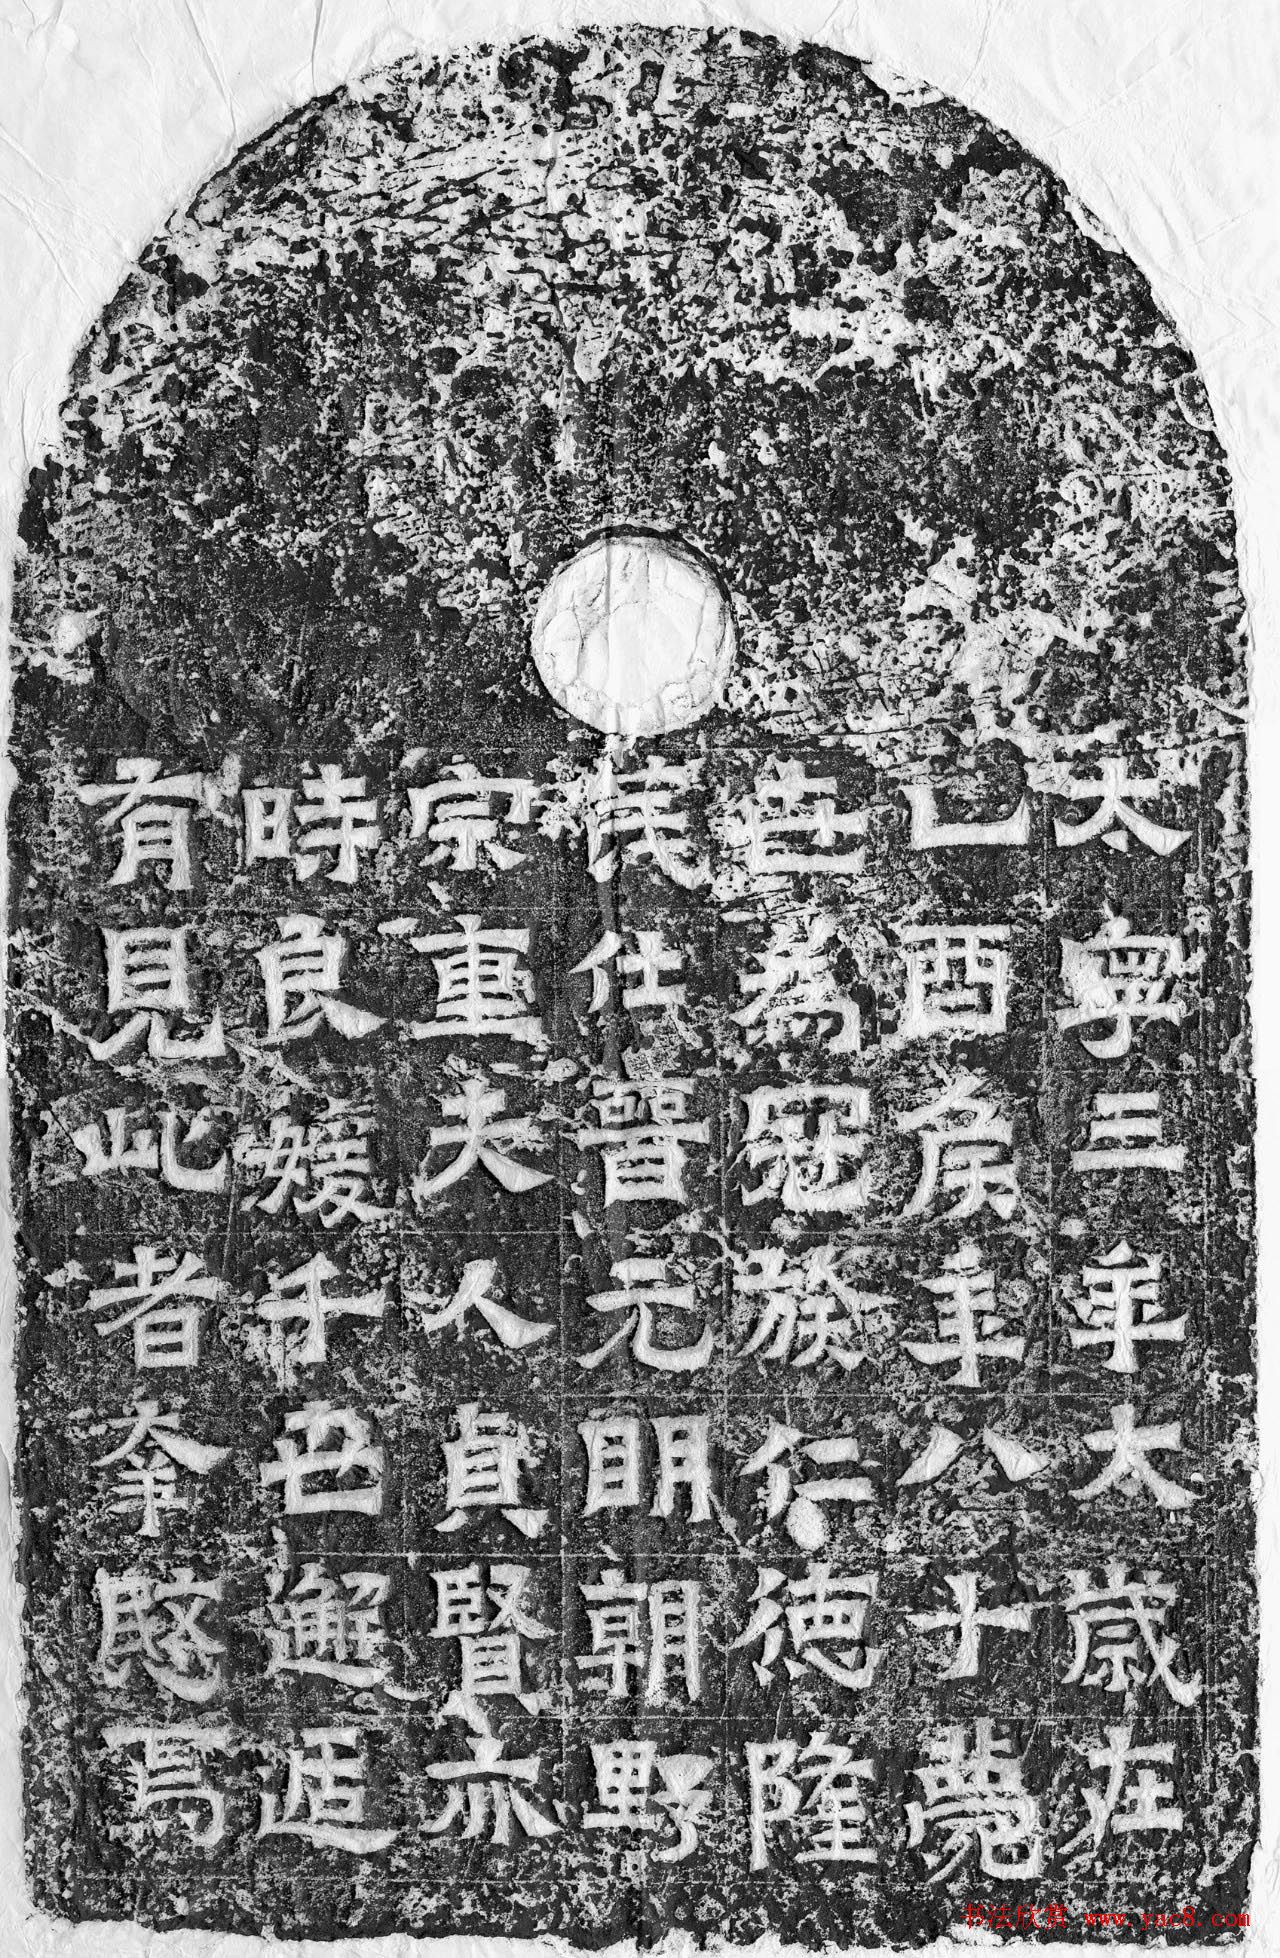 太寧三年太歲在
乙酉侯年八十薨
世為冠族仁德隆
茂仕晉元明朝野
宗重夫人貞賢亦
時良媛千世邂逅
有見此者幸愍焉
书法欣赏 www.yac8.com